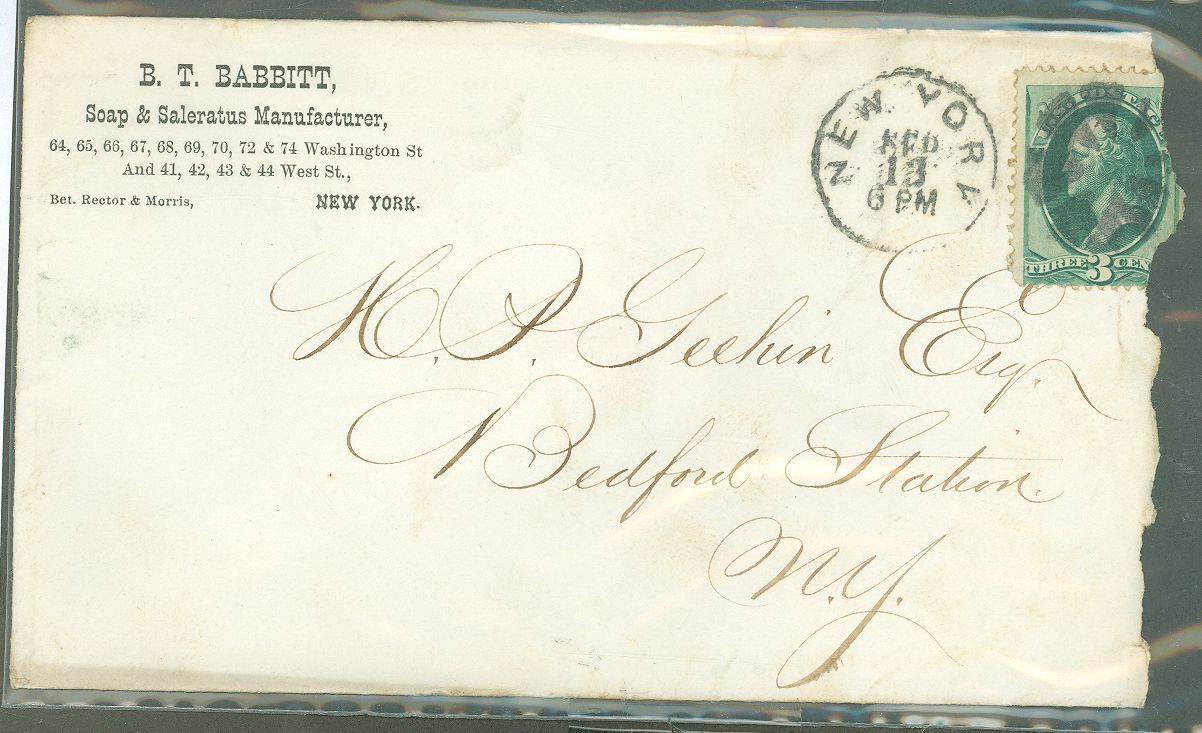 B. T. BABBITT,
Soap & Saleratus Manufacturer,
64, 65, 66, 67, 68, 69, 70, 72 & 74 Washington St
And 41, 42, 43 & 44 West St.,
Bet. Rector & Morris, NEW YORK.
NEW YORK
13
6 PM
THREE 3 CEN
H. P. Geehin Esq.
Bedford Station
N.Y.